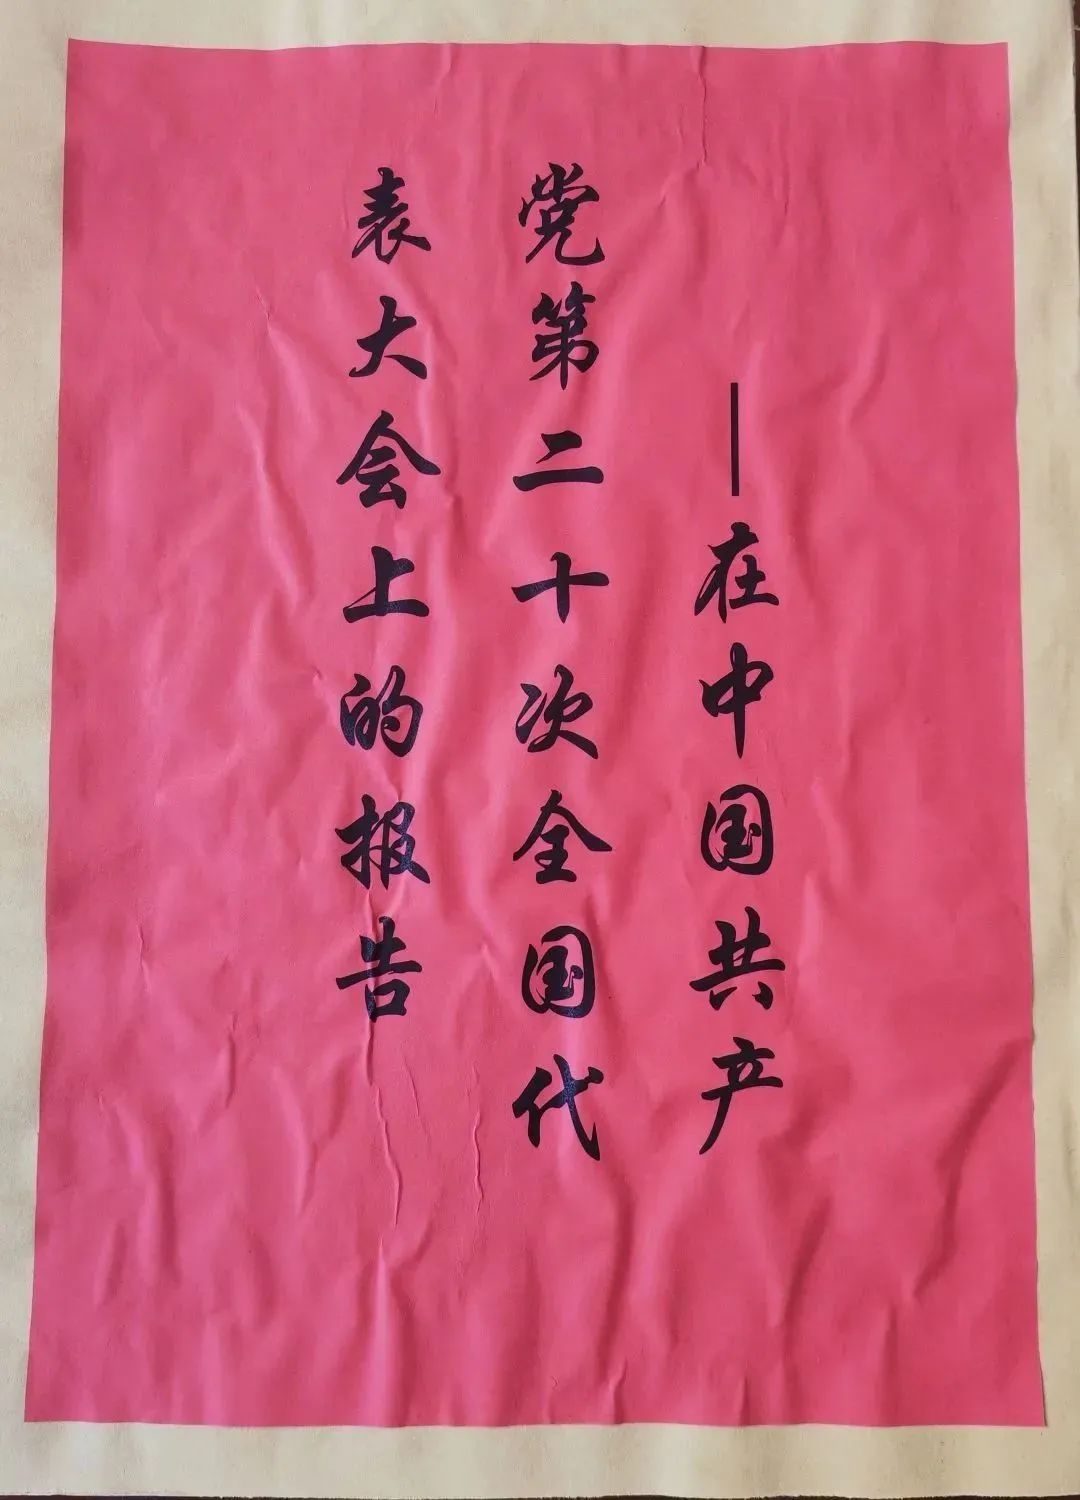 —在中国共产
党第二十次全国代
表大会上的报告